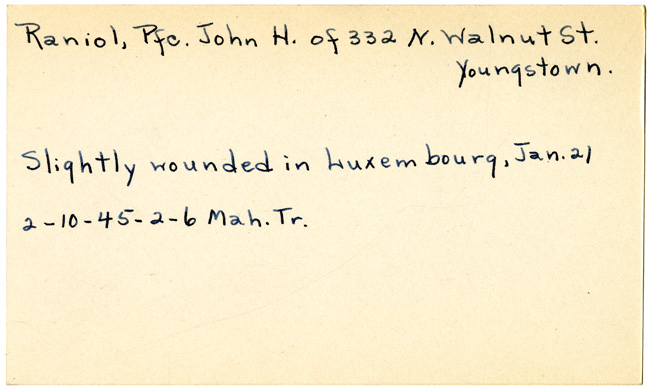 Raniol, Pfc. John H. of 332 N. Walnut St.
Youngstown.
Slightly wounded in Luxembourg, Jan. 21
2-10-45-2-6 Mah. Tr.